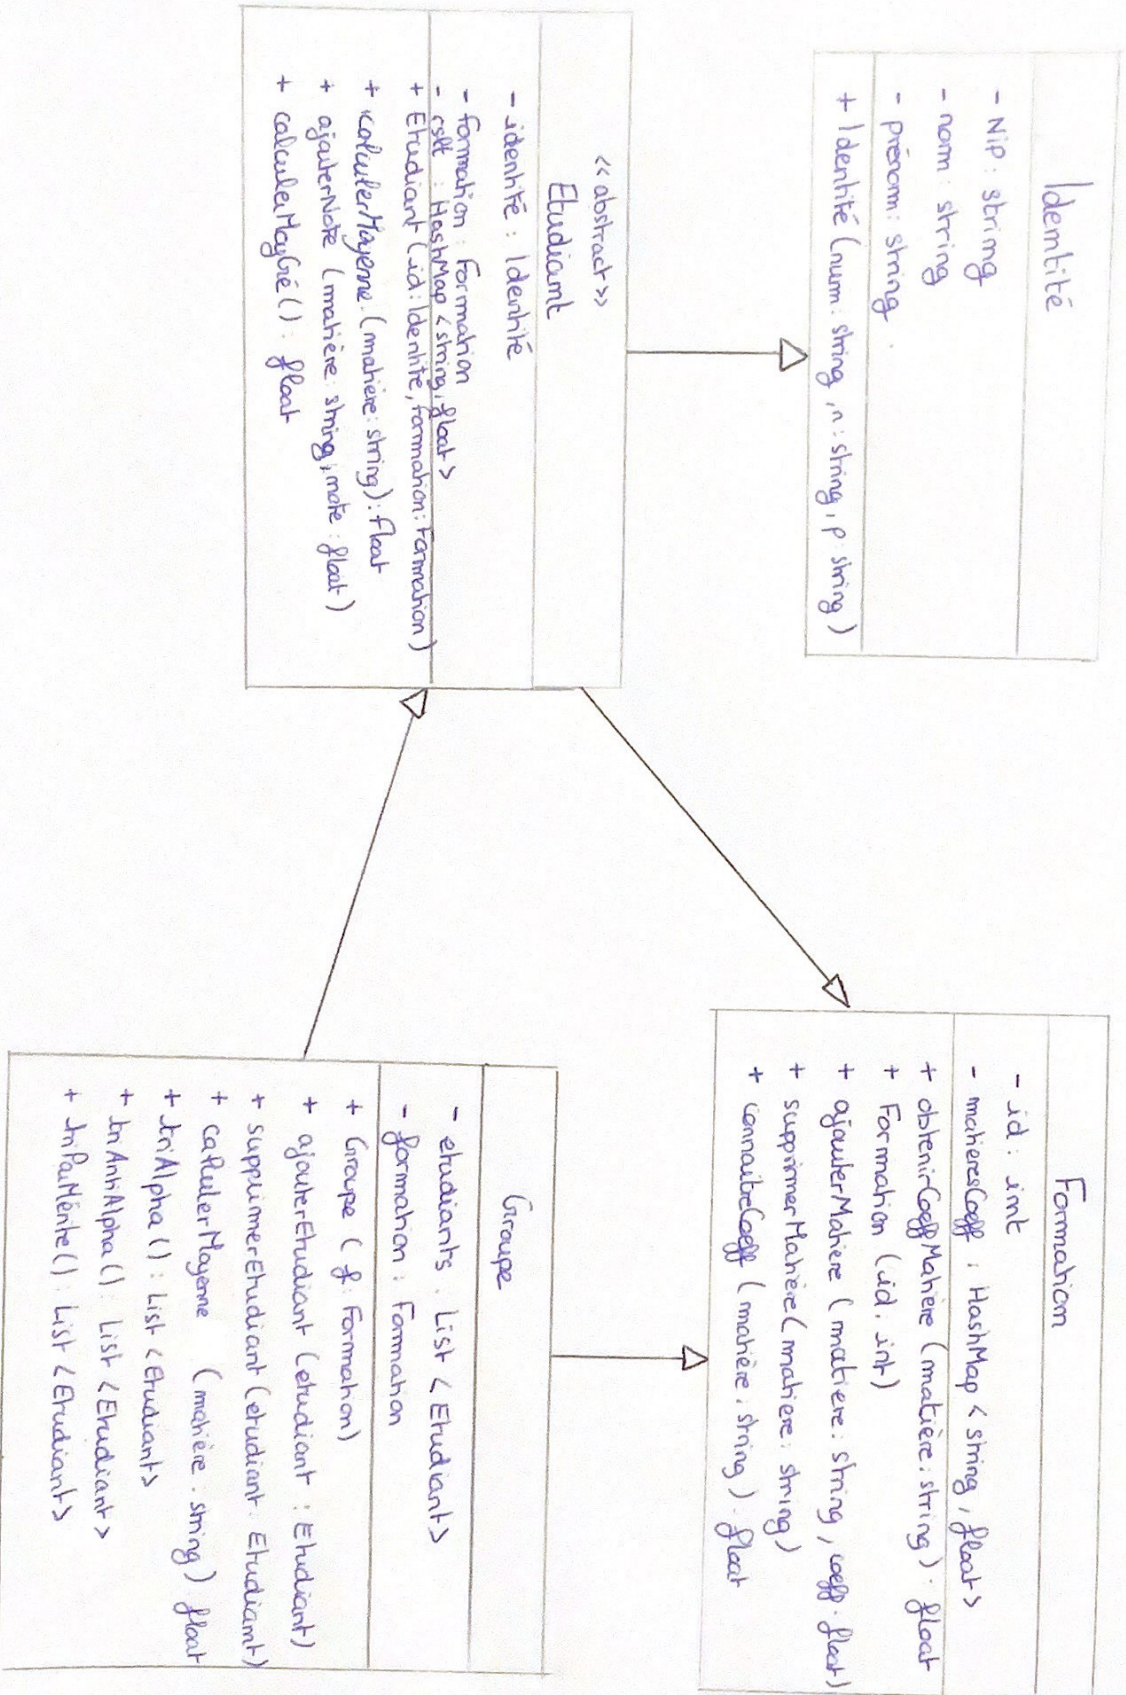 Identité
- Nip : string
- nom : string
- prénom : string.
+ Identité (num : string, n : string, p : string)
<<abstract>>
Etudiant
- identité : Identité
- formation : Formation
- rslt : HashMap < string, float >
+ Etudiant (id : Identité, formation : Formation)
+ calculerMoyenne (matière : string) : float
+ ajouterNote (matière : string, note : float)
+ calculerMoyGé () : float
Formation
- id : int
- matieresCoeff : HashMap < string, float >
+ obtenirCoeffMatière (matière : string) : float
+ Formation (id : int)
+ ajouterMatière (matiere : string, coeff : float)
+ supprimerMatière (matiere : string)
+ connaitreCoeff (matière : string) : float
Groupe
- etudiants : List < Etudiant >
- formation : Formation
+ Groupe (f : Formation)
+ ajouterEtudiant (etudiant : Etudiant)
+ supprimerEtudiant (etudiant : Etudiant)
+ calculerMoyenne (matière : string) float
+ triAlpha () : List < Etudiant >
+ triAntiAlpha () : List < Etudiant >
+ triParMérite () : List < Etudiant >